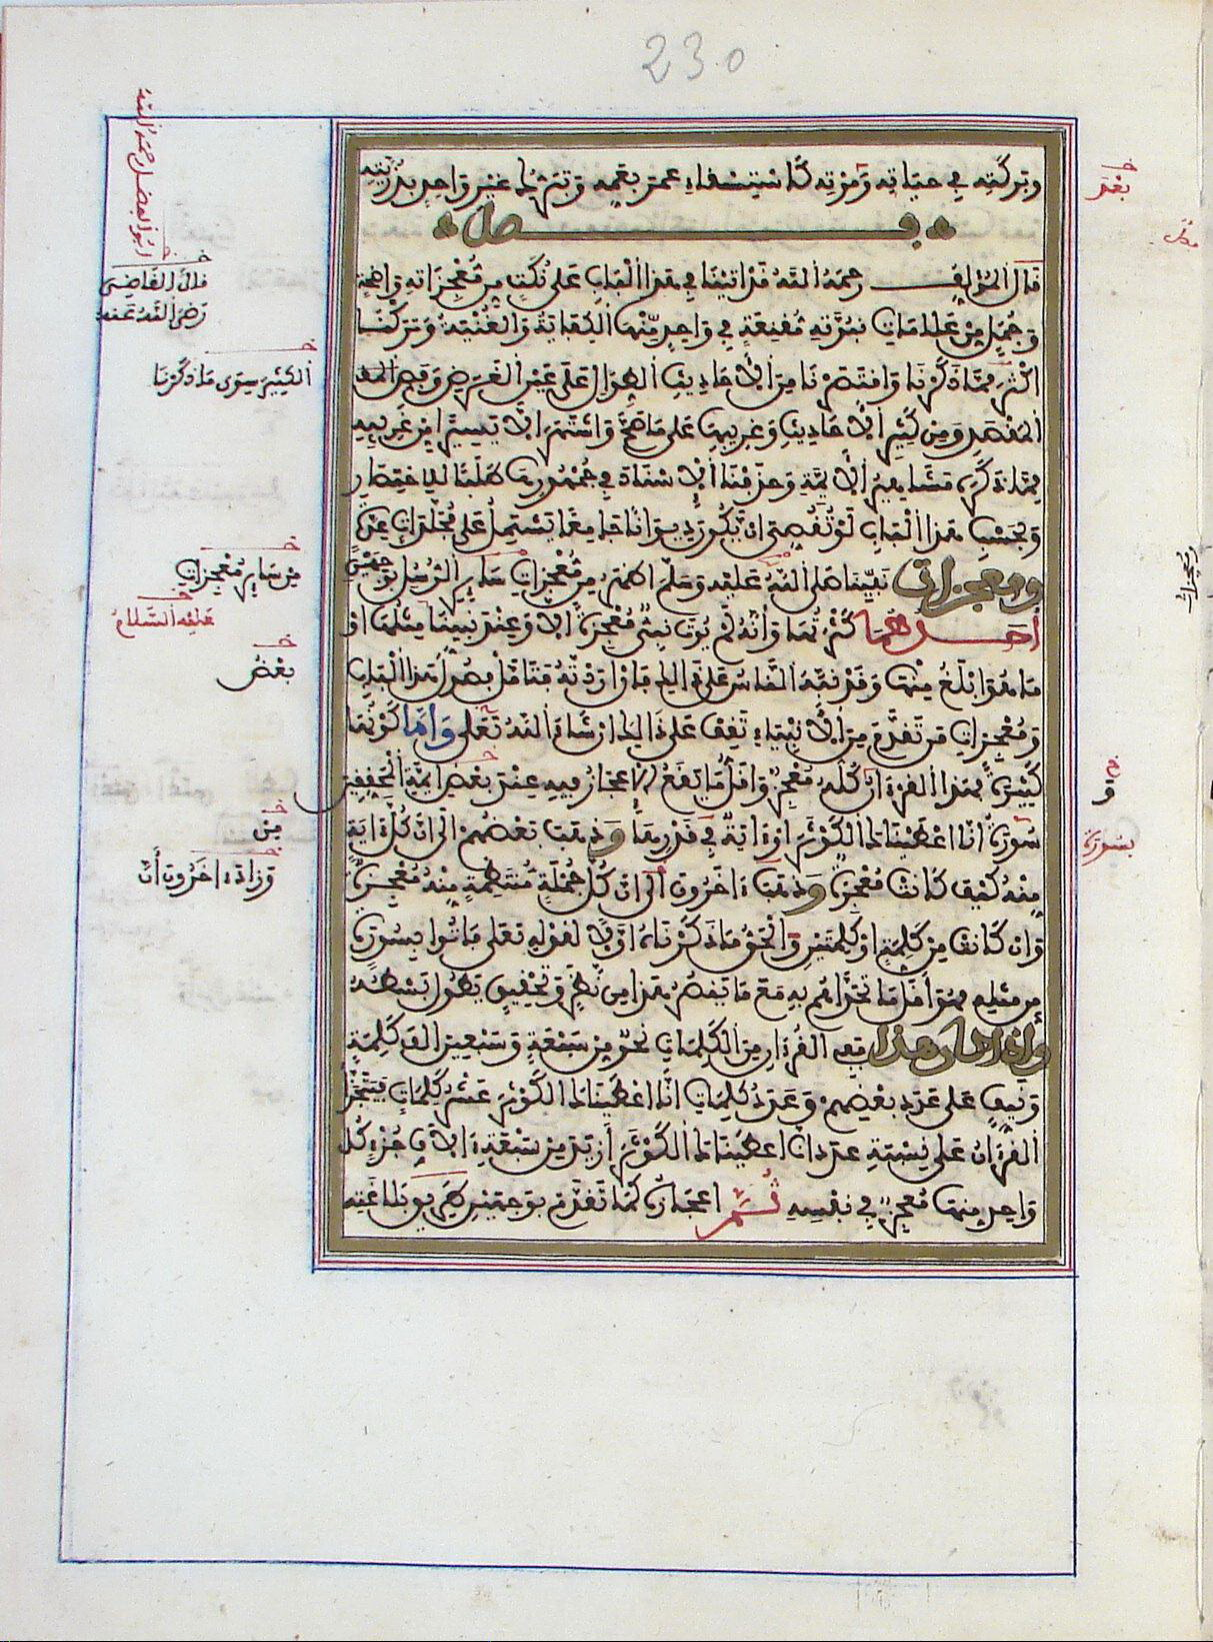 230
وبركته في حياته وموته كاستسقاء عمر بعمه وتبرك غير واحد بذريته
فصل
قال المؤلف رحمه الله قد اتينا في هذا الباب على نكت من معجزاته واضحة
وجمل من علامات نبوته مقنعة في واحد منها الكفاية والغنية وتركنا
اكثر مما ذكرنا واقتصرنا من الاحاديث الطوال على عين الغرض وفص المقصد
ومن كثير الاحاديث وغريبها على ما صح واشتهر الا يسيرا من غريبه
مما ذكره مشاهير الايمة وحذفنا الاسناد في جمهورها طلبا للاختصار
وبحسب هذا الباب لو تقصي ان يكون ديوانا جامعا يشتمل على مجلدات عدة
ومعجزات نبينا صلى الله عليه وسلم اظهر من معجزات ساير الرسل بوجهين
احدهما كثرتها وانه لم يوت نبي معجزة الا وعند نبينا مثلها او
ما هو ابلغ منها وقد نبه الناس على ذلك فان اردته فتامل فصول هذا الباب
ومعجزات من تقدم من الانبياء تقف على ذلك ان شاء الله تعلى واما كونها
كثيرة فهذا القرءان كله معجز واقل ما يقع الاعجاز فيه عند بعض ايمة المحققين
سورة انا اعطيناك الكوثر او ءاية في قدرها وذهب بعضهم الى ان كل ءاية
منه كيف كانت معجزة وذهب ءاخرون الى ان كل جملة منتظمة منه معجزة
وان كانت من كلمة او كلمتين والحق ما ذكرناه اولا لقوله تعلى فاتوا بسورة
من مثله فهو اقل ما تحداهم به مع ما ينصر هذا من نظر وتحقيق يطول بسطه
واذا كان هذا ففي القرءان من الكلمات نحو من سبعة وسبعين الف كلمة
ونيف على عدد بعضهم وعدد كلمات انا اعطيناك الكوثر عشر كلمات فيتجزأ
القرءان على نسبة عدد انا اعطيناك الكوثر ازيد من سبعة ءالاف جزء كل
واحد منها معجز في نفسه ثم اعجازه كما تقدم بوجهين طريق بلاغته
ابو الفضل رحمه الله
قال القاضي
رضي الله عنه
الكثير سوى ما ذكرنا
من ساير معجزات
عليه السلام
بعض
من
وزاد ءاخرون ان
بعد
بسورة